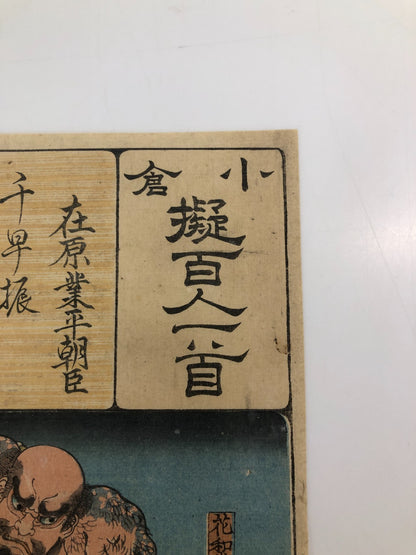 小倉
擬百人一首
在原業平朝臣
千早振
花和